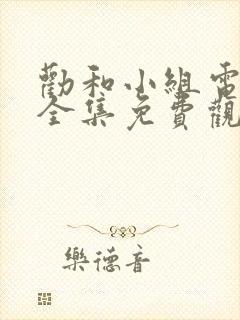 勸和小組電
全集免費觀
樂德音